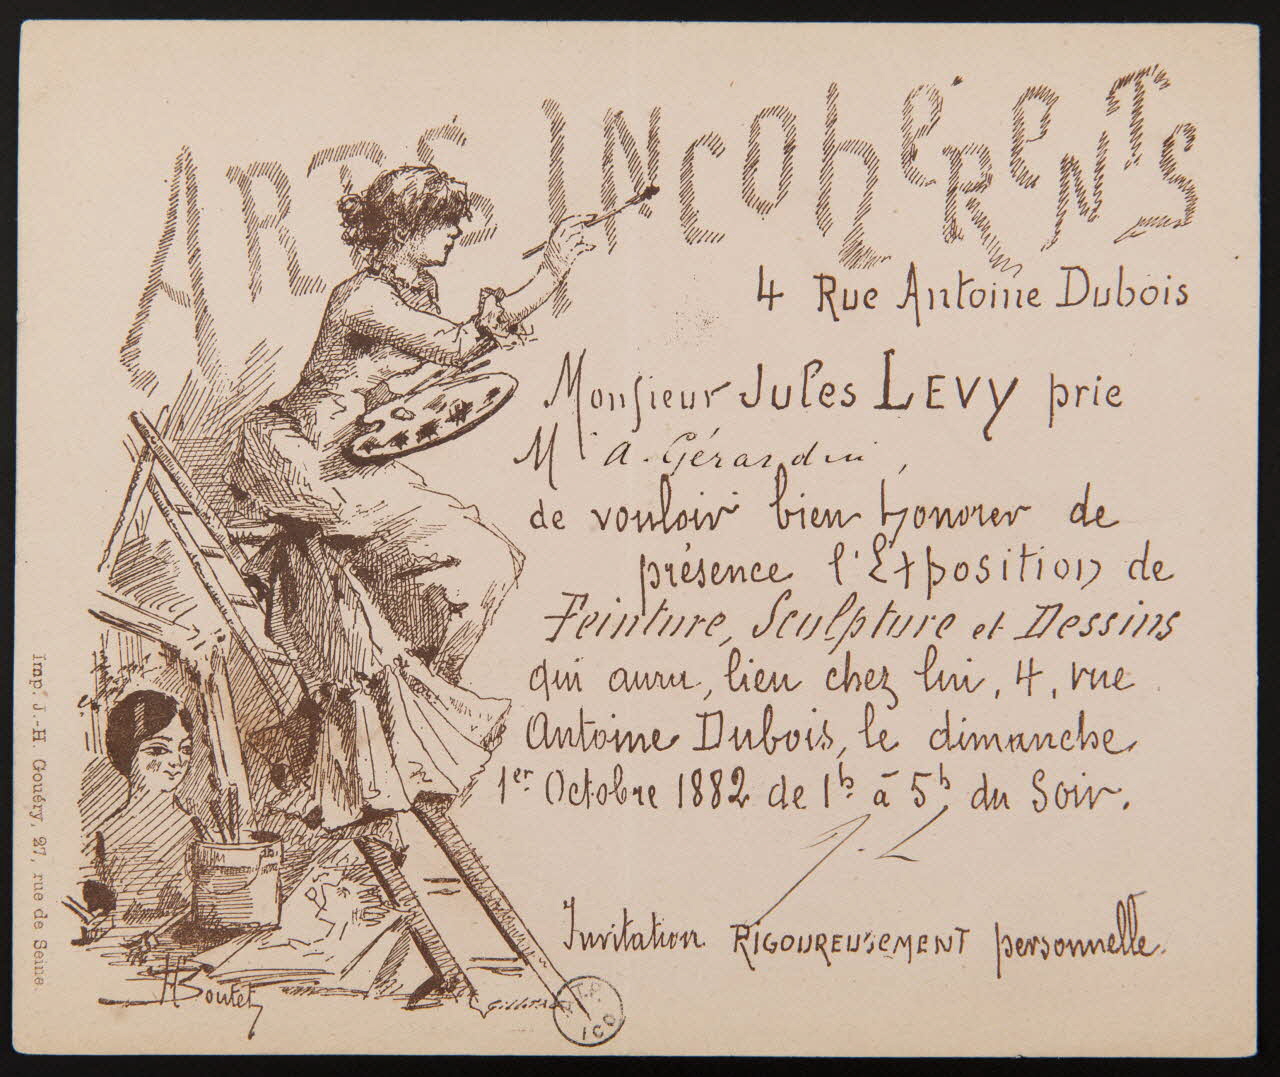 ARTS INCOHÉRENTS
4 Rue Antoine Dubois
Monsieur Jules LEVY prie
M A. Gérardin,
de vouloir bien honorer de
présence l'Exposition de
Peinture, Sculpture et Dessins
qui aura, lieu chez lui, 4, rue
Antoine Dubois, le dimanche
1er Octobre 1882 de 1h à 5h du Soir.
J. L
Invitation RIGOUREUSEMENT personnelle.
HBoutet
Gillot
ATP
ICO
Imp. J.-H. Gouéry, 27, rue de Seine.